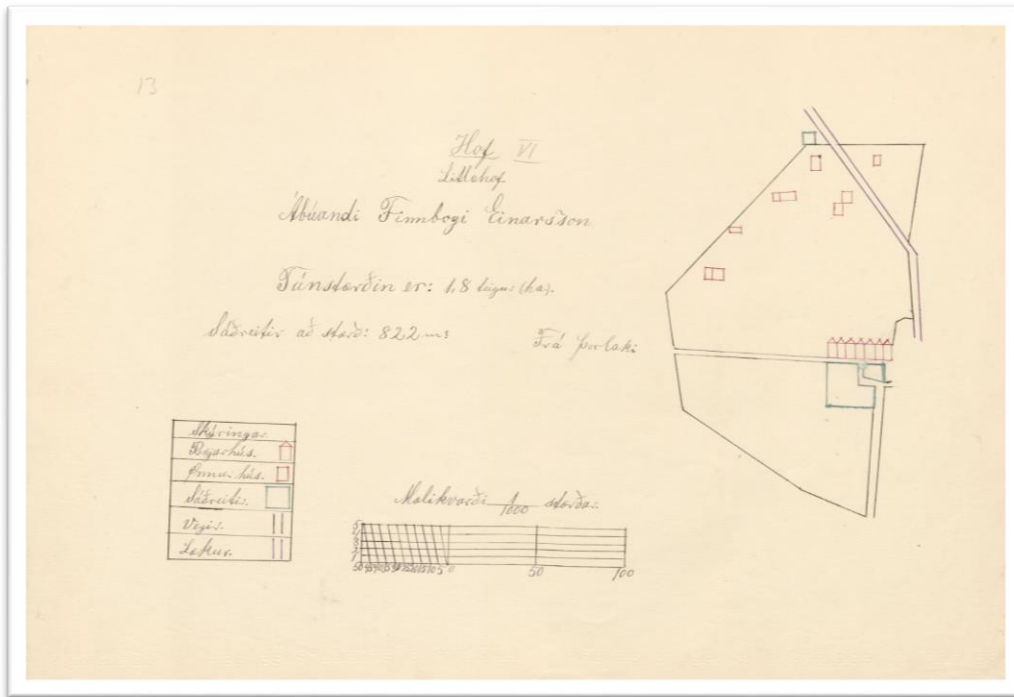 13
Hof VI
Litlahof
Ábúandi Finnbogi Einarsson
Túnstærðin er: 1,8 teigur (ha).
Sáðreitir að stærð: 822 m²
Frá Þorláki
Skýringar.
Bæjarhús.
Önnur hús.
Sáðreiti.
Vegir.
Lækur.
Mælikvarði 1/1000 stærðar
5
4
3
2
1
50 45 40 35 30 25 20 15 10 5 0 50 100